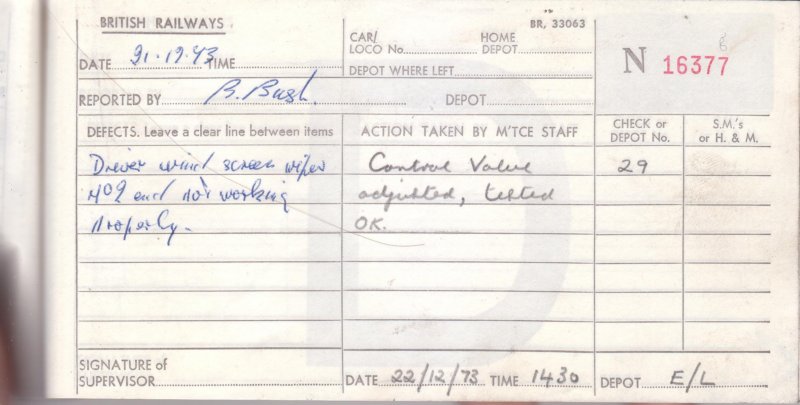 BRITISH RAILWAYS
BR. 33063
CAR/ LOCO No. HOME DEPOT
N 16377
DATE 21·12·73 TIME
DEPOT WHERE LEFT
REPORTED BY B. Bush. DEPOT
DEFECTS. Leave a clear line between items
ACTION TAKEN BY M'TCE STAFF
CHECK or DEPOT No.
S.M.'s or H. & M.
Driver wind screen wiper
No 2 end not working
properly.
Control Valve
adjusted, tested
OK.
29
SIGNATURE of SUPERVISOR
DATE 22/12/73 TIME 1430 DEPOT E/L
D